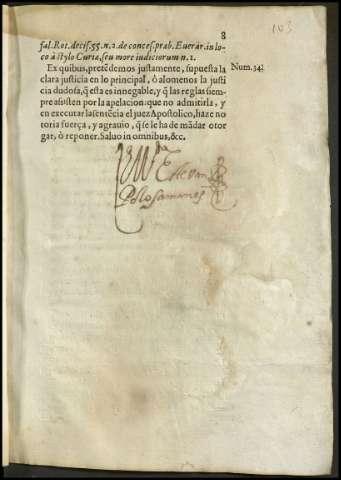 103
8
fal. Rot. decis. 55. n. 2. de conces. prab. Euerar. in lo-
co à stylo Curiæ, seu more iudiciorum n. 2.
Ex quibus, pretẽdemos justamente, supuesta la Num. 34.
clara justicia en lo principal, ò alomenos la justi
cia dudosa, q̃ esta es innegable, y q̃ las reglas siem-
pre asisten por la apelacion: que no admitirla, y
en executar la sentẽcia el juez Apostolico, haze no
toria fuerça, y agrauio, q̃ se le ha de mãdar otor
gar, ò reponer. Saluo in omnibus, &c.
Esteuan
Polo